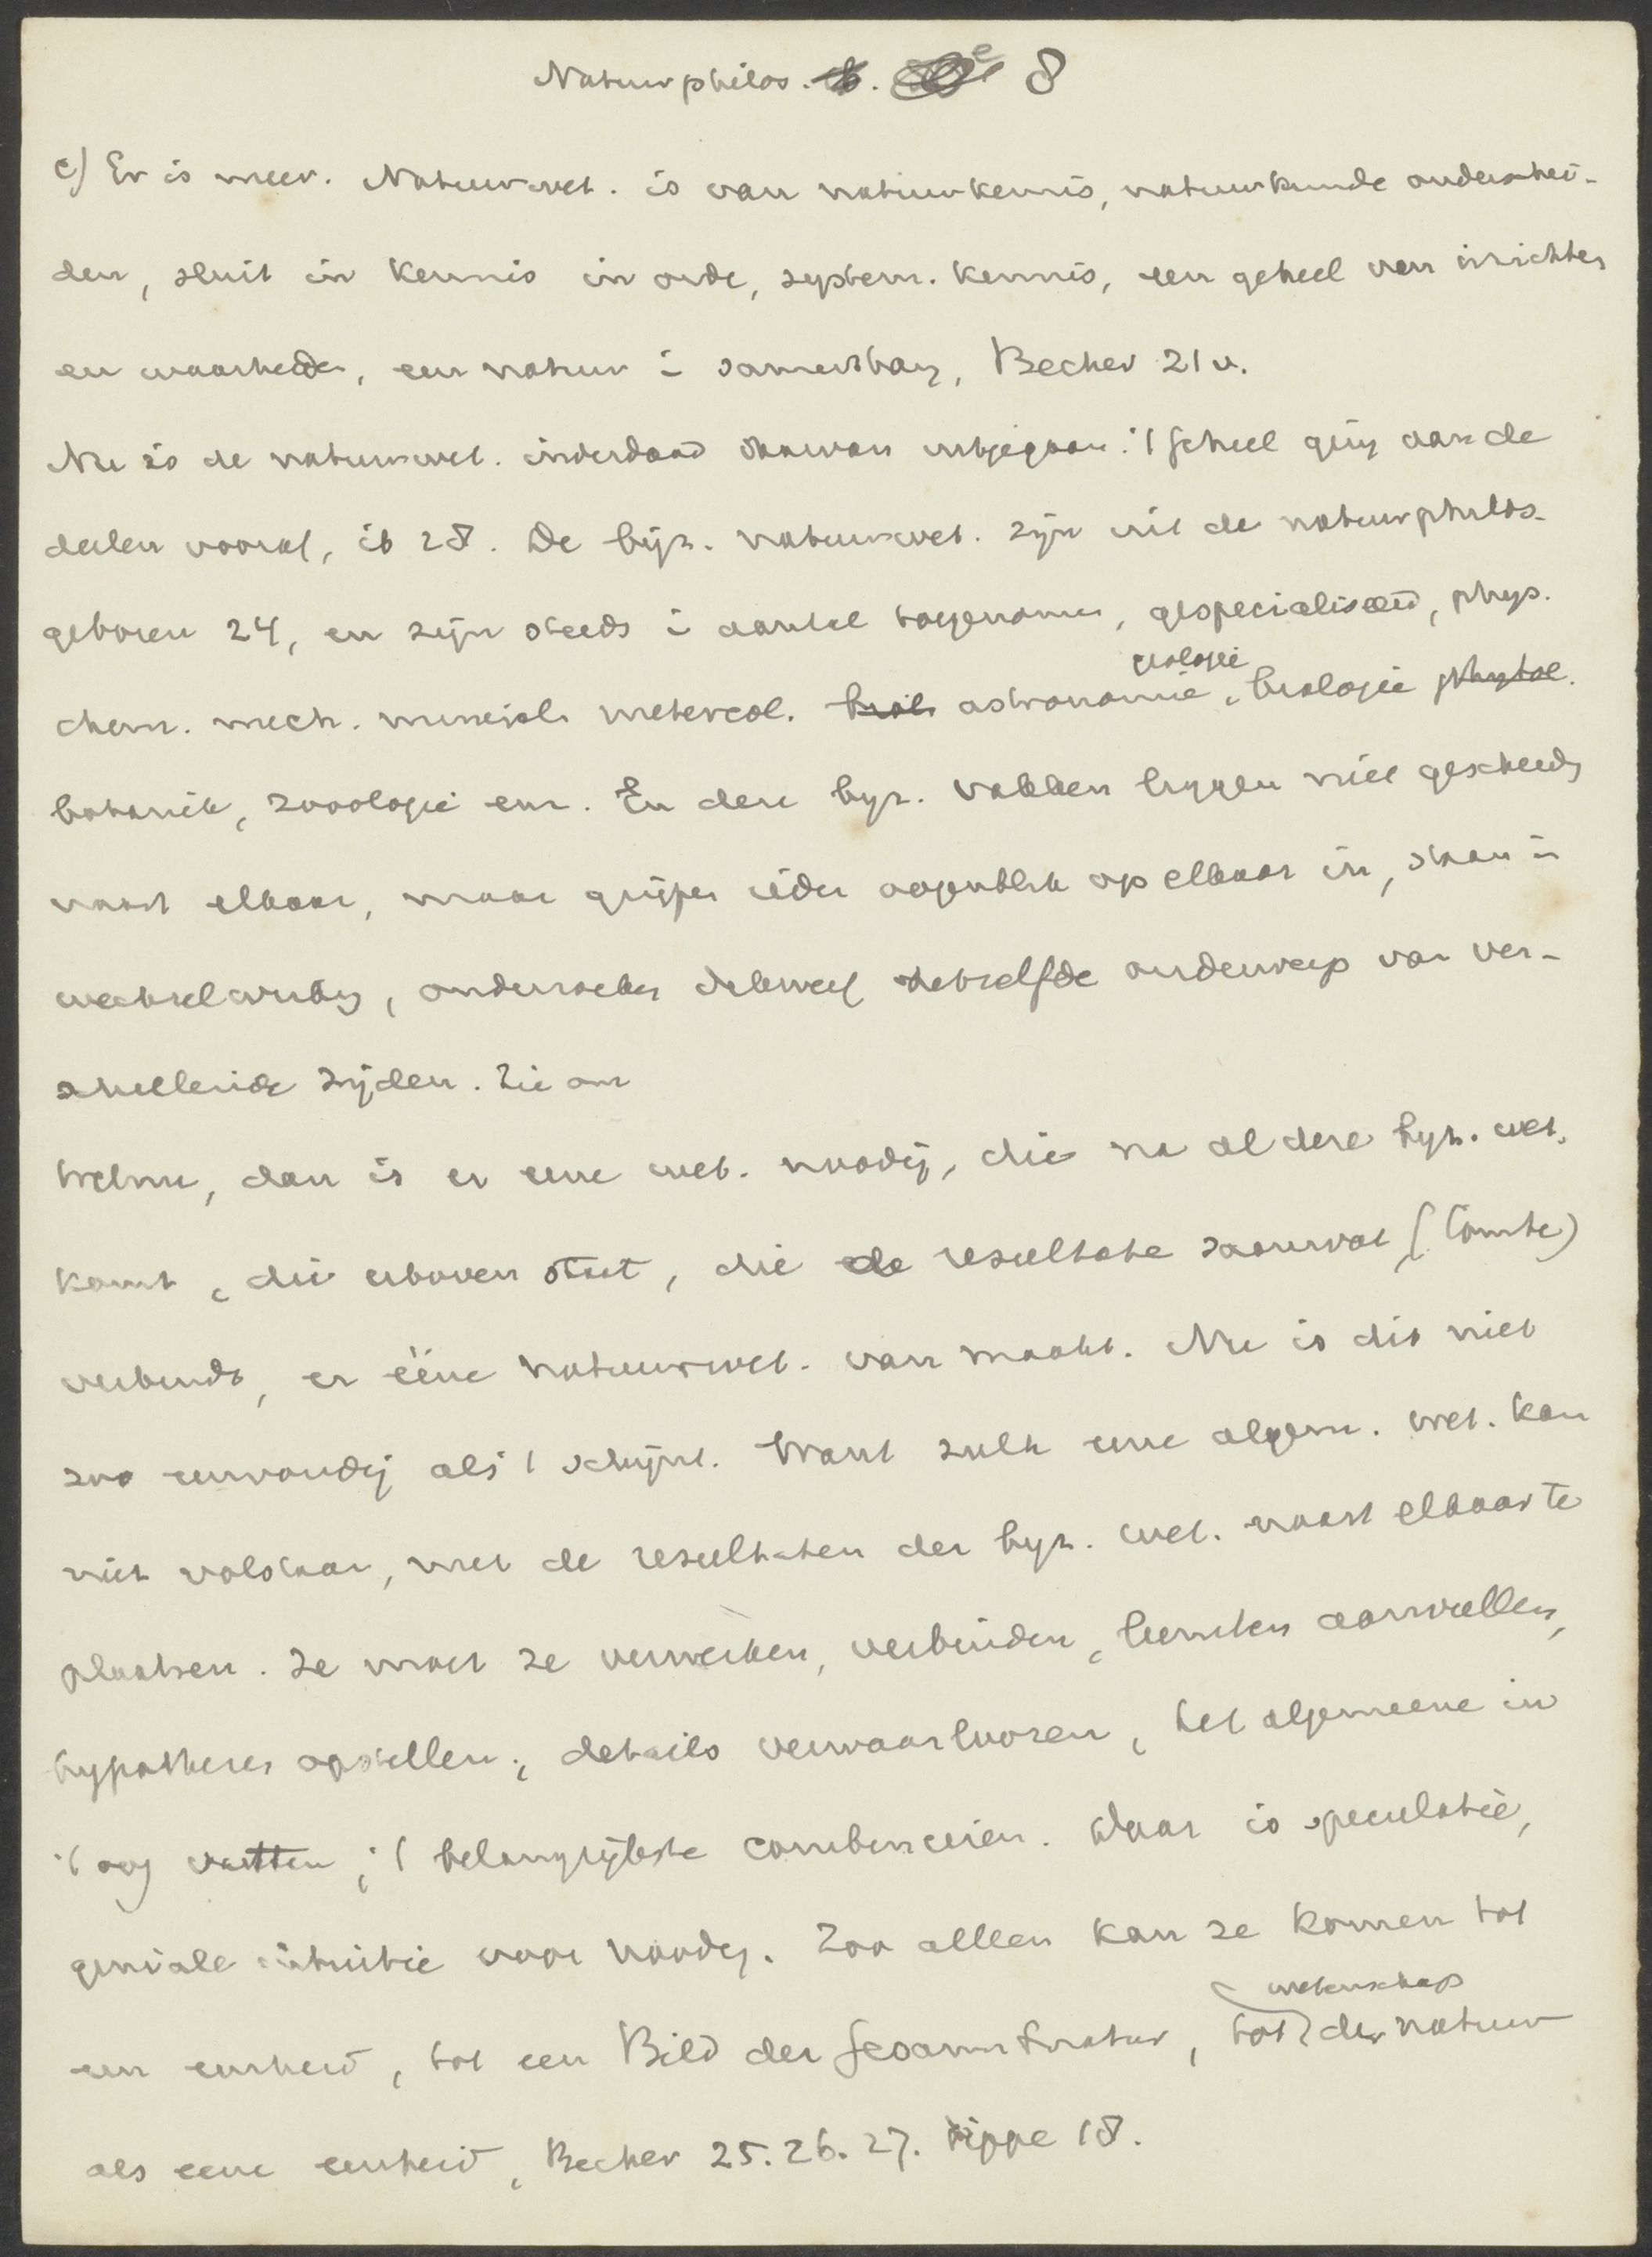 Natuurphilos. 8
c) Er is meer. Natuurwet. is van natuurkennis, natuurkunde onderschei-
den, sluit in kennis in orde, system. kennis, een geheel van inzichten
en waarheden, een natuur i samenhang, Becher 21 v.
Nu is de natuurwet. inderdaad daarvan uitgegaan: 't geheel ging aan de
deelen vooraf, ib 28. De bijz. natuurwet. zijn uit de natuurphilos.
geboren 24, en zijn steeds i aantal toegenomen, gespecialiseerd, phys.
geologie
chem. mech. mineral. metereol. astronomie, biologie
botanik, zoologie enz. En deze byz. vakken liggen niet gescheiden
naast elkaar, maar grijpen ieder oogenblik op elkaar in, staan in
wechselwerking, onderzoeken dikwerf hetzelfde onderwerp van ver-
schillende zijden. Zie om
Welnu, dan is er eene wet. noodig, die na al deze byz. wet.
komt, die erboven staat, die de resultate saamvat, (Comte)
verbindt, er ééne natuurwet. van maakt. Nu is dit niet
zoo eenvoudig als 't schijnt. Want zulk eene algem. wet. kan
niet volstaan, met de resultaten der byz. wet. naast elkaar te
plaatsen. Ze moet ze verwerken, verbinden, leemten aanvullen,
hypothesen opstellen, details verwaarloozen, het algemeene in
't oog vatten, 't belangrijkste combineeren. Daar is speculatie,
geniale intuitie voor noodig. Zoo alleen kan ze komen tot
wetenschap
een eenheid, tot een Bild der Gesamtnatur, tot der natuur
als eene eenheid, Becher 25. 26. 27. Lippe 18.